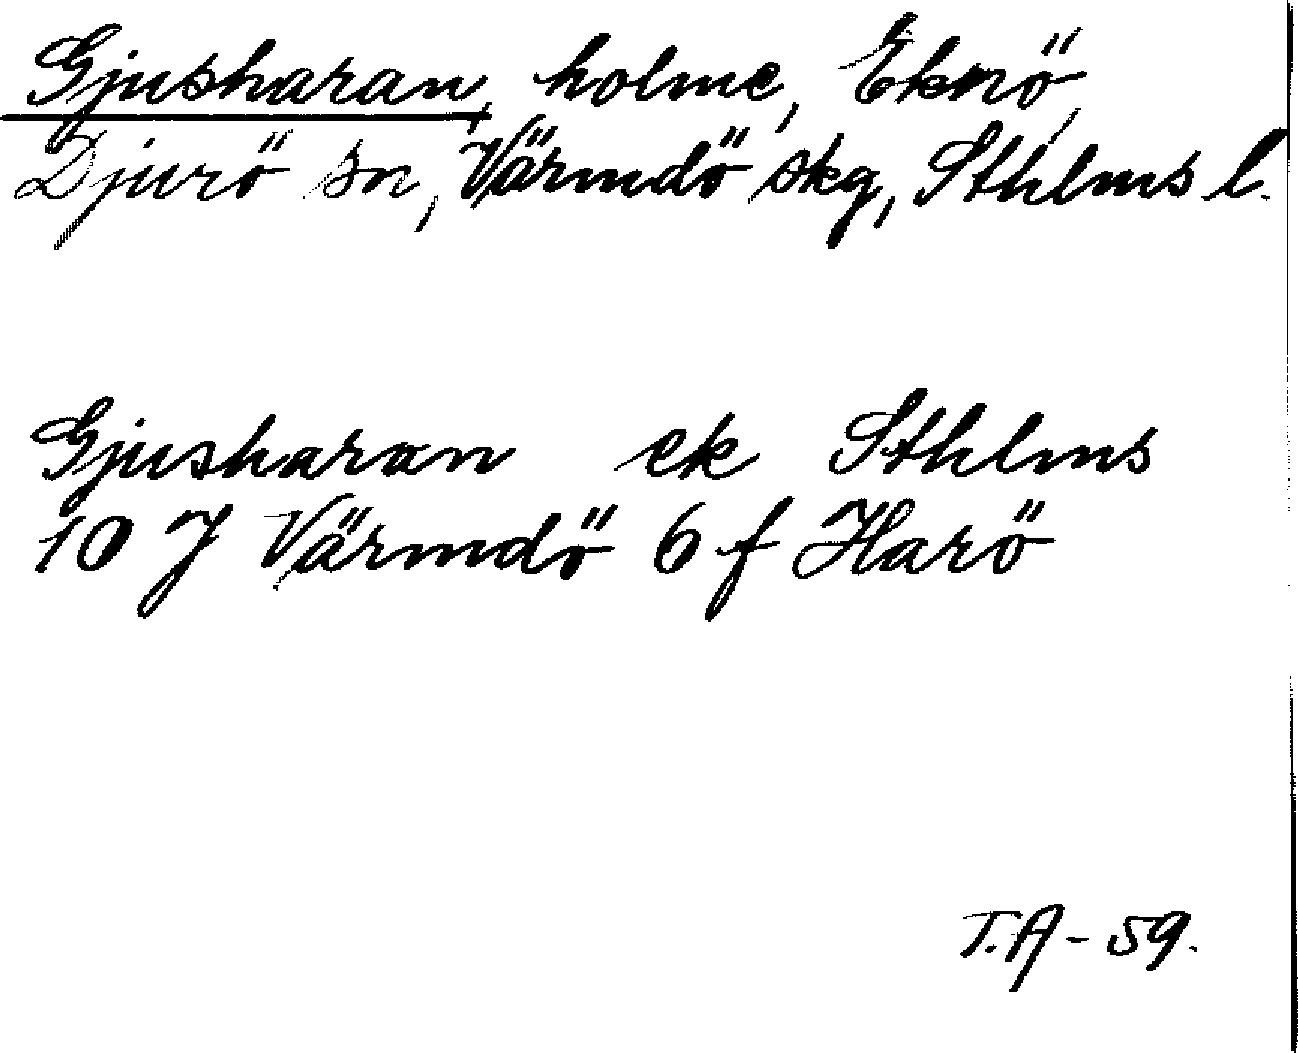 Gjusharan, holme, Eknö,
Djurö sn, Värmdö skg, Sthlms l.
Gjusharan ek Sthlms
10 J Värmdö 6 f Harö
T.A - 59.